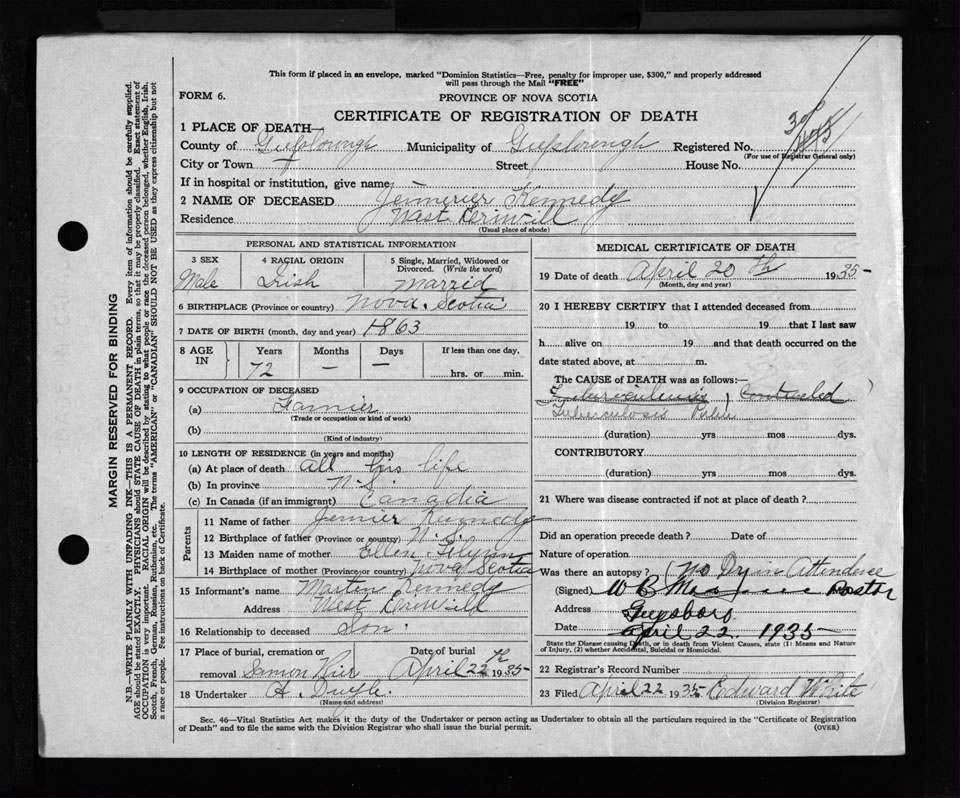 This form if placed in an envelope, marked "Dominion Statistics—Free, penalty for improper use, $300," and properly addressed
will pass through the Mail "FREE"
FORM 6.
PROVINCE OF NOVA SCOTIA
CERTIFICATE OF REGISTRATION OF DEATH
1 PLACE OF DEATH—
County of Municipality of Registered No.
(For use of Registrar General only)
City or Town Street House No.
If in hospital or institution, give name
2 NAME OF DECEASED Kennedy
Residence West
(Usual place of abode)
PERSONAL AND STATISTICAL INFORMATION
3 SEX 4 RACIAL ORIGIN 5 Single, Married, Widowed or
Divorced. (Write the word)
Male Irish Marrid
6 BIRTHPLACE (Province or country) Nova. Scotia
7 DATE OF BIRTH (month, day and year) 1863
8 AGE IN Years Months Days If less than one day,
72 — — hrs. or min.
9 OCCUPATION OF DECEASED
(a)
(Trade or occupation or kind of work)
(b)
(Kind of industry)
10 LENGTH OF RESIDENCE (in years and months)
(a) At place of death all his life
(b) In province N.S.
(c) In Canada (if an immigrant) Canadia
Parents
11 Name of father Kennedy
12 Birthplace of father (Province or country) N. S.
13 Maiden name of mother Ellen
14 Birthplace of mother (Province or country) Nova Scotia
15 Informant's name Martin Kennedy
Address West
16 Relationship to deceased Son.
17 Place of burial, cremation or Date of burial
removal April 22th 1935
18 Undertaker A.
(Name and address)
MEDICAL CERTIFICATE OF DEATH
19 Date of death April 20th 1935
(Month, day and year)
20 I HEREBY CERTIFY that I attended deceased from
19 to 19 that I last saw
h alive on 19 and that death occurred on the
date stated above, at m.
The CAUSE OF DEATH was as follows:—
Tuberculosis
(duration) yrs mos dys.
CONTRIBUTORY
(duration) yrs mos dys.
21 Where was disease contracted if not at place of death?
Did an operation precede death? Date of
Nature of operation
Was there an autopsy? (No Dr in Attendence
(Signed) W B
Address
Date April 22. 1935
State the Disease causing Death, or in death from Violent Causes, state (1) Means and Nature
of Injury, (2) whether Accidental, Suicidal or Homicidal.
22 Registrar's Record Number
23 Filed April 22 1935 Edward White
(Division Registrar)
Sec. 46—Vital Statistics Act makes it the duty of the Undertaker or person acting as Undertaker to obtain all the particulars required in the "Certificate of Registration
of Death" and to file the same with the Division Registrar who shall issue the burial permit. (OVER)
MARGIN RESERVED FOR BINDING
N.B.—WRITE PLAINLY WITH UNFADING INK—THIS IS A PERMANENT RECORD. Every item of information should be carefully supplied.
AGE should be stated EXACTLY. PHYSICIANS should STATE CAUSE OF DEATH in plain terms, so that it may be properly classified. Exact statement of
OCCUPATION is very important. RACIAL ORIGIN will be described by stating to what people or race the deceased person belonged, whether English, Irish,
Scotch, French, German, Russian, Ruthenian, etc. The terms "AMERICAN" or "CANADIAN" SHOULD NOT BE USED as they express citizenship but not
a race or people. See instructions on back of Certificate.